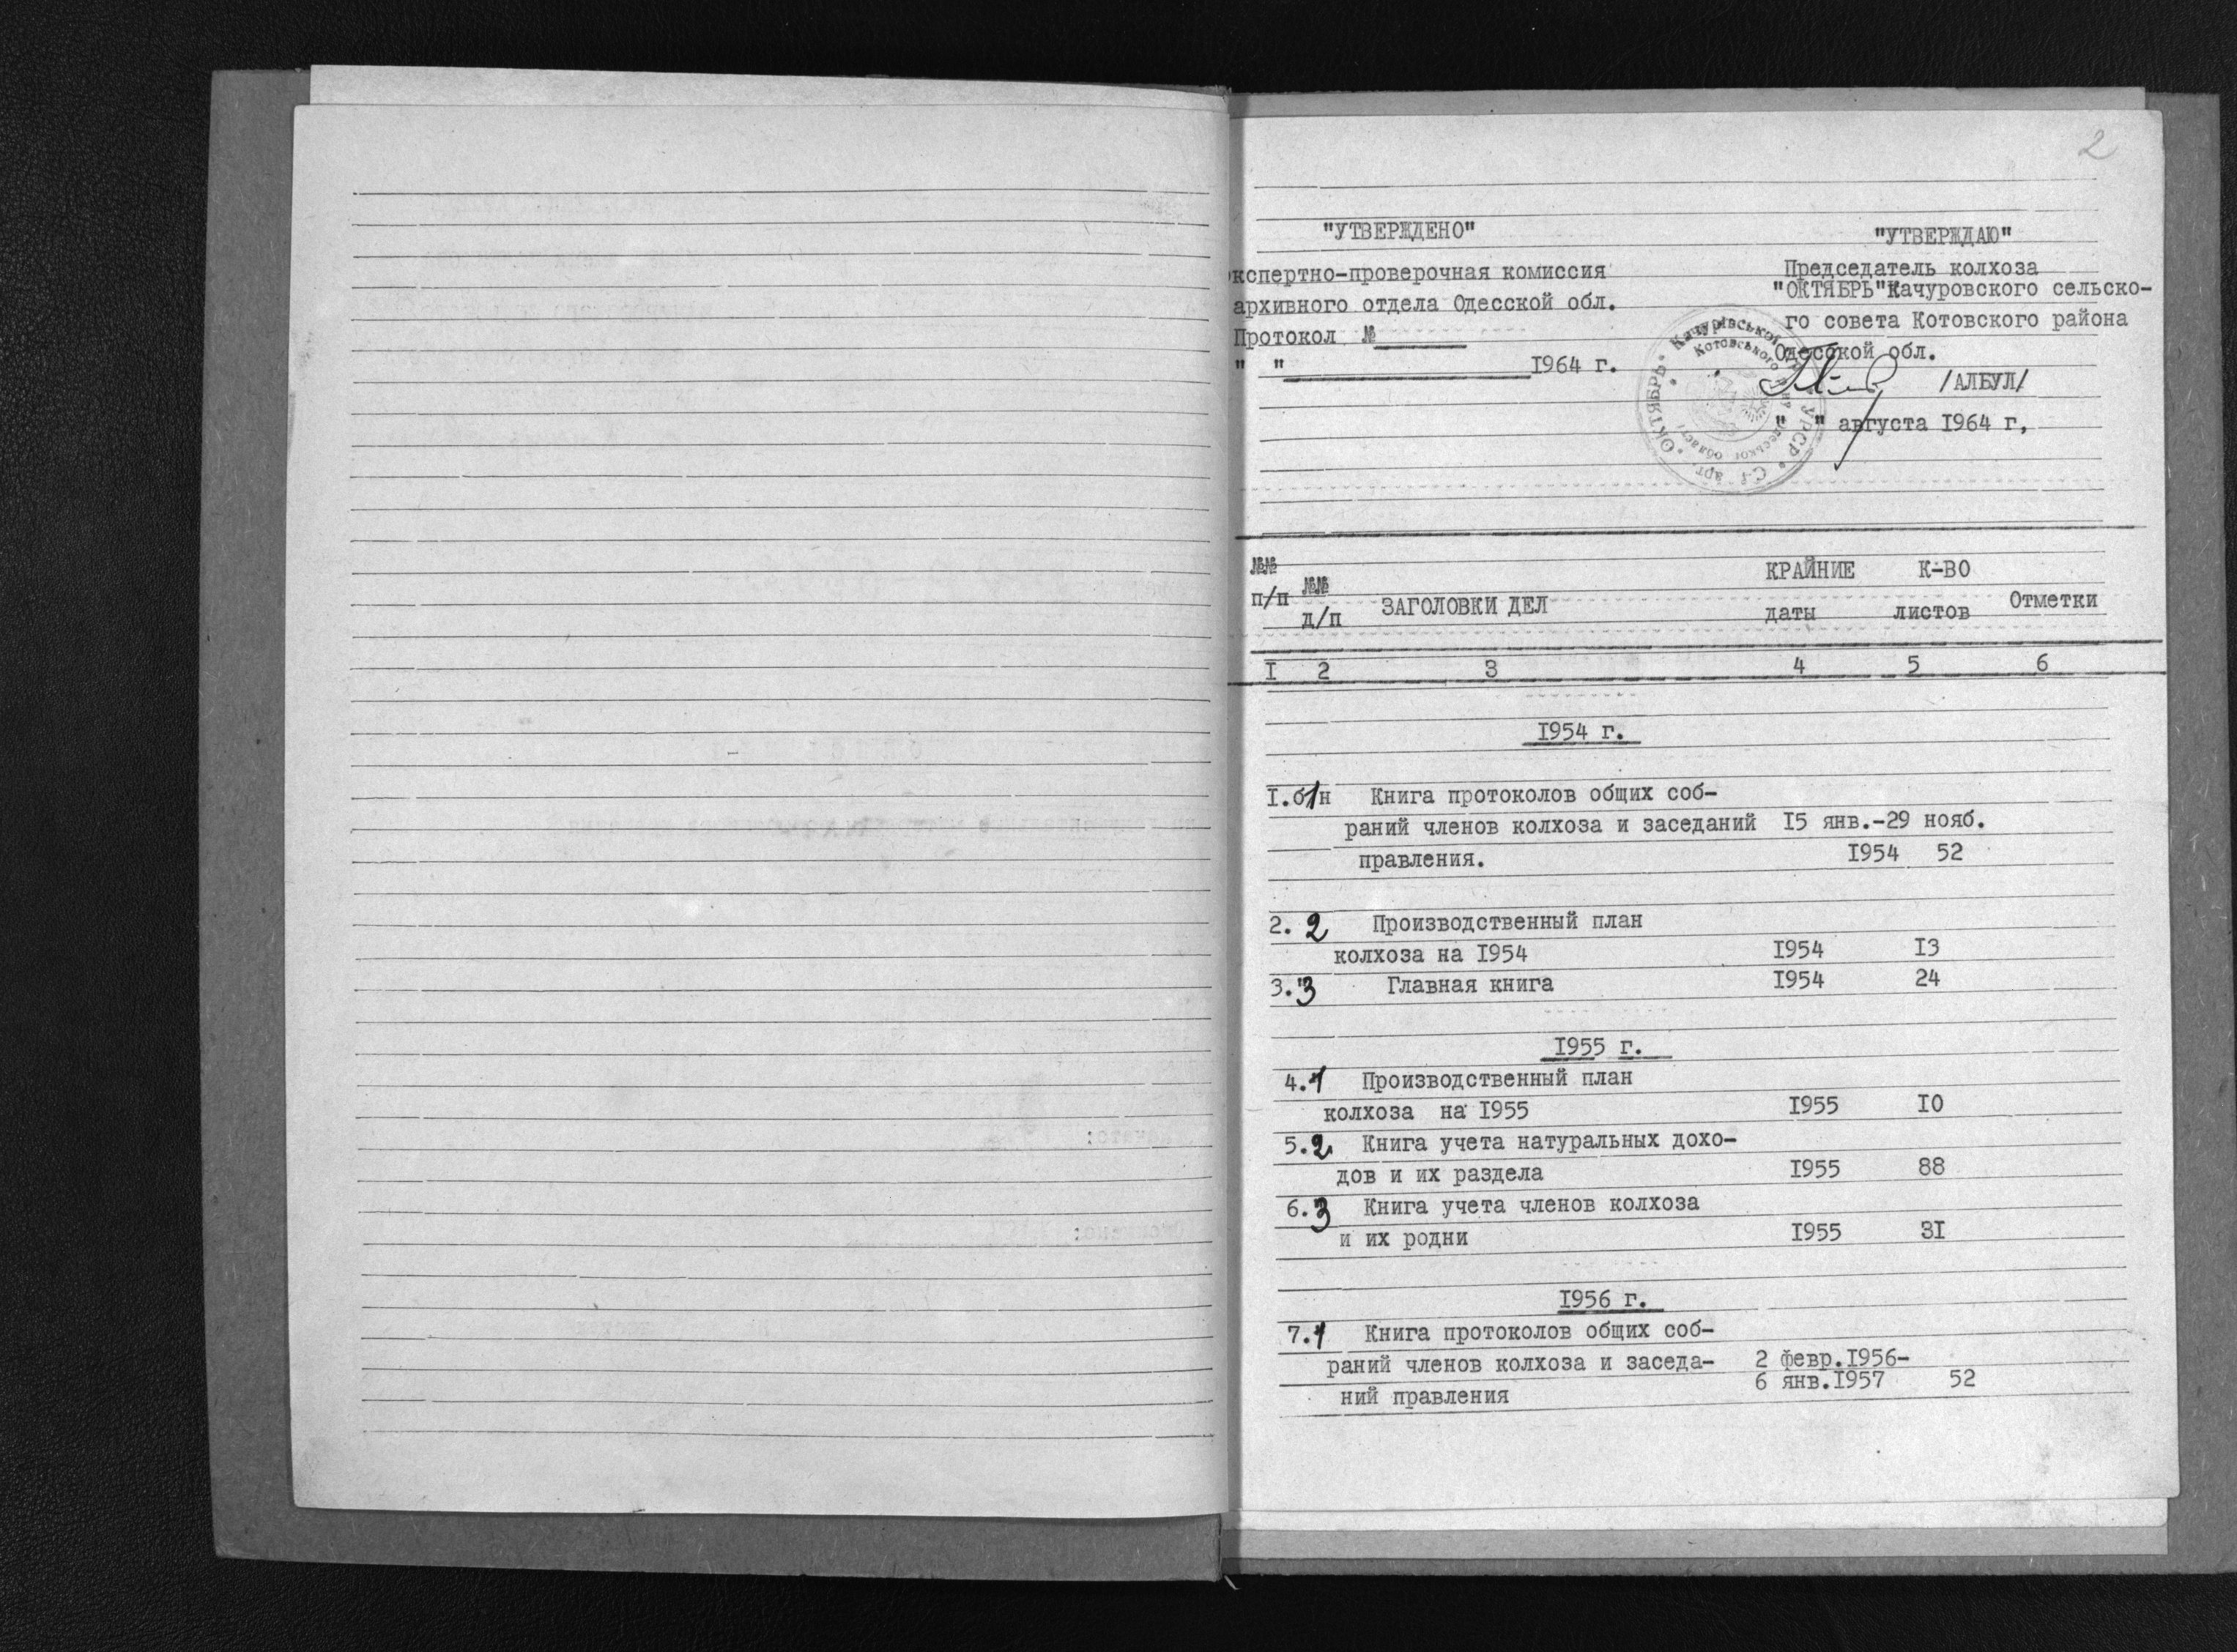 2
"УТВЕРЖДЕНО"
кспертно-проверочная комиссия
архивного отдела Одесской обл.
Протокол №
" " 1964 г.
"УТВЕРЖДАЮ"
Председатель колхоза
"ОКТЯБРЬ" Качуровского сельско-
го совета Котовского района
Одесской обл.
/АЛБУЛ/
" " августа 1964 г,
Качурівської УРСР • С-г арт. ОКТЯБРЬ •
Котовського області
№№ п/п
№№ д/п
ЗАГОЛОВКИ ДЕЛ
КРАЙНИЕ даты
К-ВО листов
Отметки
1 2 3 4 5 6
1954 г.
1. 1 б/н Книга протоколов общих соб-
раний членов колхоза и заседаний 15 янв.-29 нояб.
правления. 1954 52
2. 2 Производственный план
колхоза на 1954 1954 13
3. 3 Главная книга 1954 24
1955 г.
4. 1 Производственный план
колхоза на 1955 1955 10
5. 2 Книга учета натуральных дохо-
дов и их раздела 1955 88
6. 3 Книга учета членов колхоза
и их родни 1955 31
1956 г.
7. 1 Книга протоколов общих соб-
раний членов колхоза и заседа- 2 февр.1956-
ний правления 6 янв.1957 52